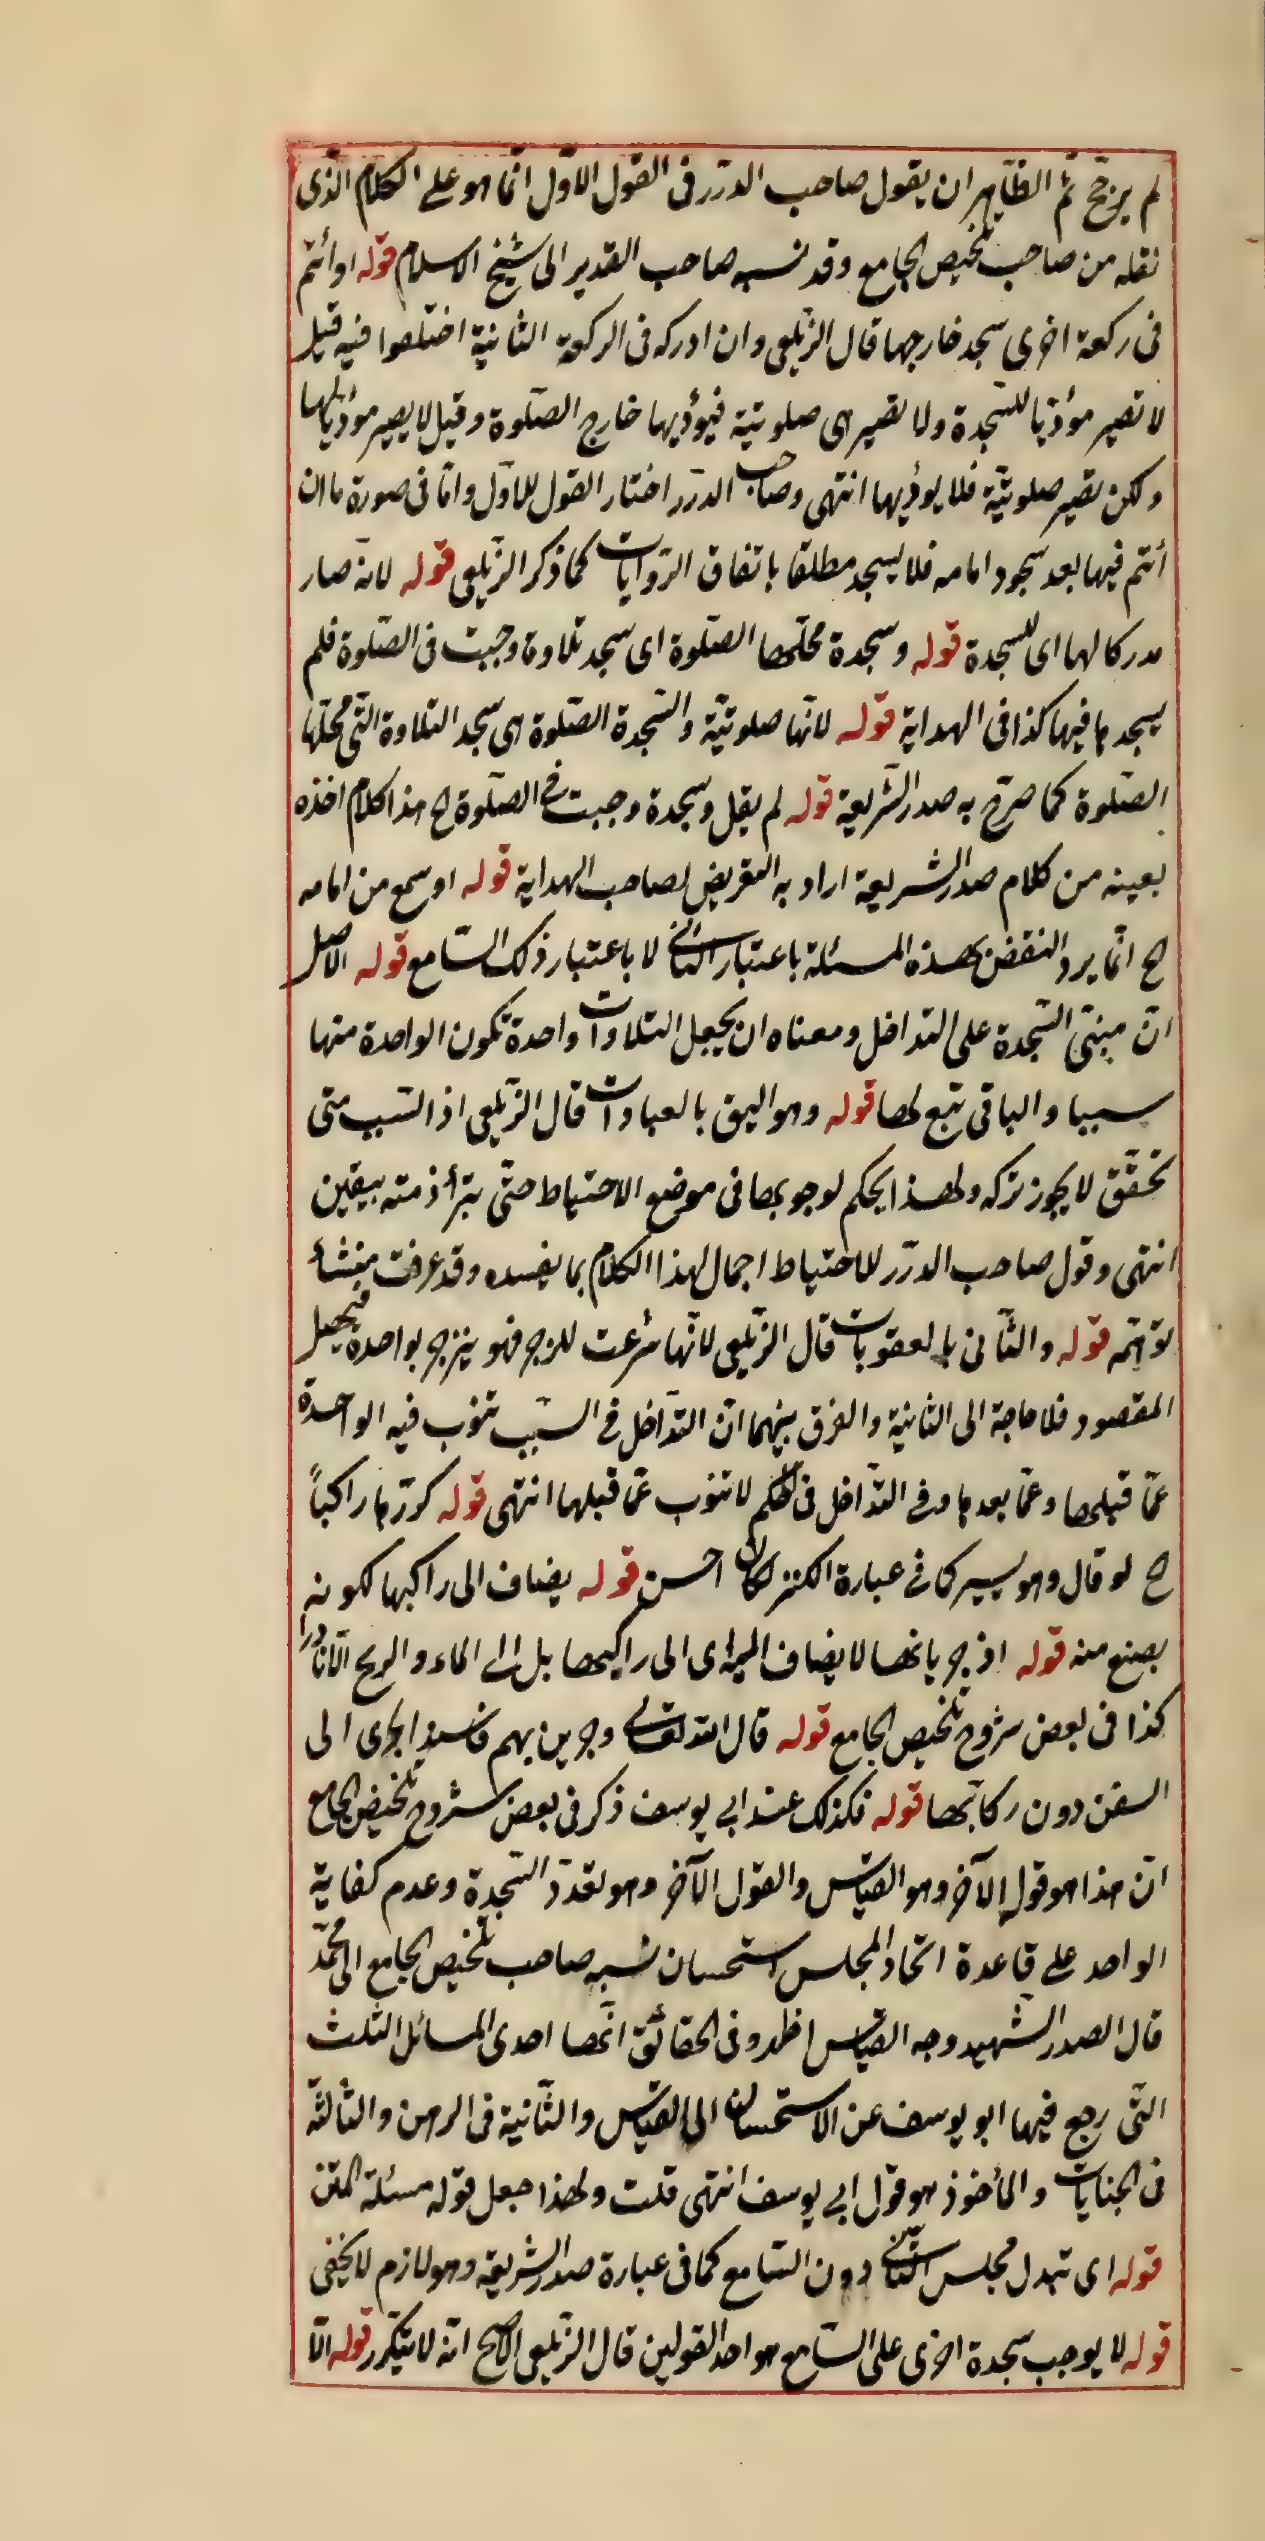 لم يرجح ثمّ الظاهر ان يقول صاحب الدرر فى القول الاوّل انّما هو على الكلام الّذى
نقله من صاحب تلخيص الجامع وقد نسبه صاحب القدير الى شيخ الاسلام قوله او أتمّ
فى ركعة اخرى سجد خارجها قال الزيلعى وان ادركه فى الركعة الثانية اختلصوا فيه قيل
لا تصير مؤدّيا للسّجدة ولا تصير هى صلوتيّة فيؤدّيها خارج الصّلوة وقيل لا يصير مؤدّيا لها
ولكن تصير صلوتيّة فلا يؤدّيها انتهى وصاحب الدرر اختار القول للاوّل وامّا فى صورة ما ان
أتتم فيها بعد سجود امامه فلا يسجد مطلقا باتفاق الرّوايات كما ذكر الزّيلعى قوله لانّه صار
مدركا لها اى للسجدة قوله وسجدة محلّها الصّلوة اى سجد تلاوة وجبت فى الصّلوة فلم
يسجدها فيها كذا فى الهداية قوله لانّها صلوتيّة والسّجدة الصّلوة هى سجد التلاوة الّتى محلّها
الصّلوة كما صرّح به صدر الشّريعة قوله لم يقل وسجدة وجبت فى الصّلوة الخ هذا كلام اخذه
بعينه من كلام صدر الشريعة اراد به التعريض لصاحب الهداية قوله او سمع من امامه
الخ انّما يرد النقض بهذه المسئلة باعتبار التالى لا باعتبار ذلك السّامع قوله الاصل
انّ مبنى السّجدة على التداخل ومعناه ان يجعل التلاوات واحدة تكون الواحدة منها
سببا والباقى تبع لها قوله وهو اليق بالعبادات قال الزّيلعى اذ السّبب متى
تحقّق لا يجوز تركه ولهذا يحكم لوجوبها فى موضع الاحتياط حتّى تبرأ ذمته بيقين
انتهى وقول صاحب الدرّر للاحتياط اجمال لهذا الكلام بما يفسده وقد عرفت منشأ
توهّمه قوله والثّانى بالعقوبات قال الزّيلعى لانّها شرعت للزجر فهو ينزجر بواحدة فيحصل
المقصود فلا حاجة الى الثانية والفرق بينهما انّ التّداخل فى السّبب تنوب فيه الواحدة
عمّا قبلها وعمّا بعدها وفى التّداخل فى الحكم لا تنوب عمّا قبلها انتهى قوله كرّرها راكباً
الخ لو قال وهو يسير كما فى عبارة الكنز لكان احسن قوله يضاف الى راكبها لكونه
بصنع منه قوله اذ جريانها لا يضاف اى الى راكبها بل الى الماء والريح الّا نادرا
كذا فى بعض شروح تلخيص الجامع قوله قال الله تعالى وجرين بهم فاسند الجرى الى
السفن دون ركابها قوله فكذلك عند ابى يوسف ذكر فى بعض شروح تلخيص الجامع
انّ هذا هو قوله الآخر وهو القياس والقول الآخر وهو تعدّد السّجدة وعدم كفاية
الواحد على قاعدة اتّحاد المجلس استحسان نسبه صاحب تلخيص الجامع الى محمّد
قال الصدر الشّهيد وجه القياس اظهر وفى الحقائق انّها احدى المسائل الثلث
التّى رجع فيها ابو يوسف عن الاستحسان الى القياس والثّانية فى الرهن والثالثة
فى الجنايات والمأخوذ هو قول ابى يوسف انتهى قلت ولهذا جعل قوله مسئلة المتن
قوله اى تبدل مجلس التالى دون السّامع كما فى عبارة صدر الشريعة وهو لازم لا يخفى
قوله لا يوجب سجدة اخرى على السّامع هو احد القولين قال الزّيلعى الاصحّ انّه لا يتكرّر قوله الّا